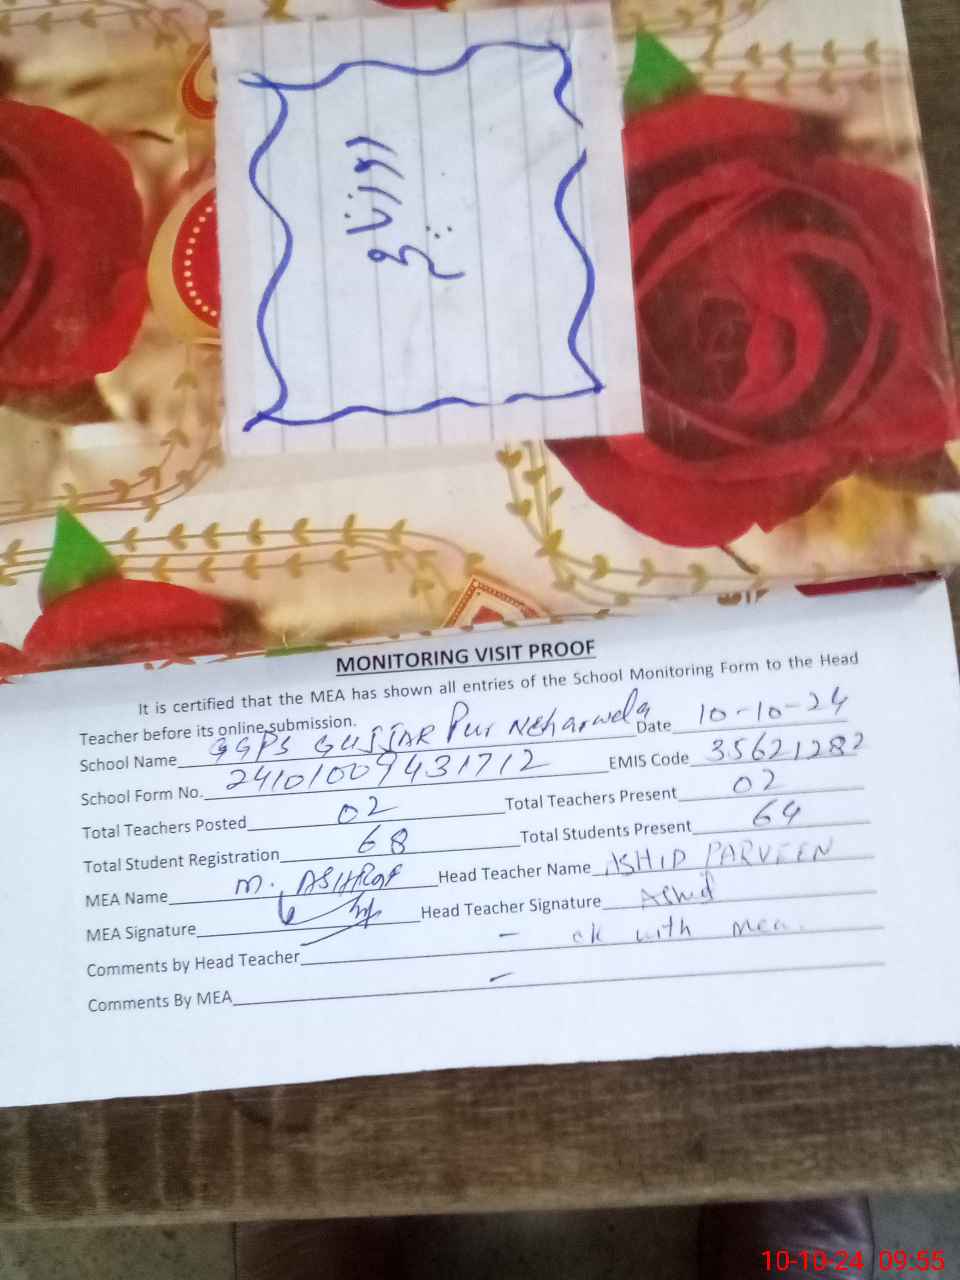 MONITORING VISIT PROOF
It is certified that the MEA has shown all entries of the School Monitoring Form to the Head
Teacher before its online submission.
School Name GGPS GUJJAR Pur Neharwala Date 10-10-24
School Form No. 24101009431712 EMIS Code 35621282
Total Teachers Posted 02 Total Teachers Present 02
Total Student Registration 68 Total Students Present 64
MEA Name M. ASHRAF Head Teacher Name ASHID PARVEEN
MEA Signature Head Teacher Signature Ashid
Comments by Head Teacher - ok with mea.
Comments By MEA -
10-10-24 09:55